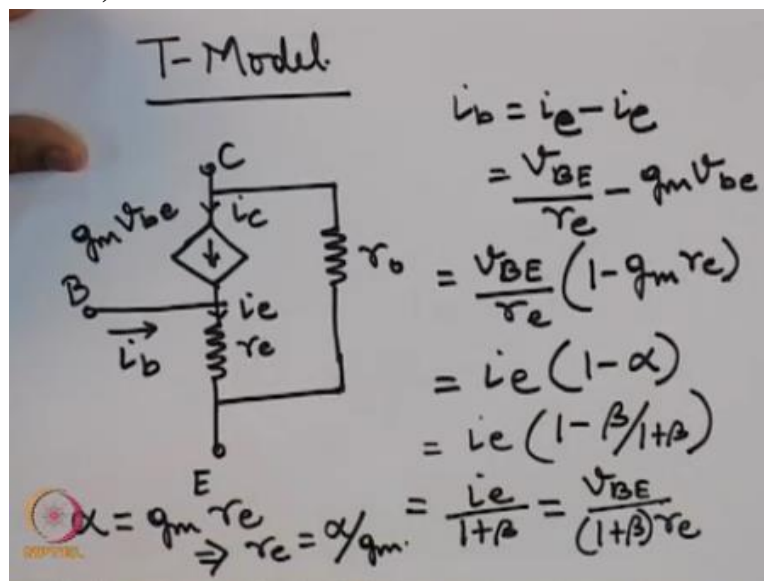 T-Model.
C
g_m v_be
i_c
r_o
B
i_b
i_e
r_e
E
α = g_m r_e
⇒ r_e = α/g_m.
i_b = i_e - i_e
= v_BE/r_e - g_m v_be
= v_BE/r_e (1 - g_m r_e)
= i_e (1 - α)
= i_e (1 - β/1+β)
= i_e/1+β = v_BE/(1+β) r_e
NPTEL